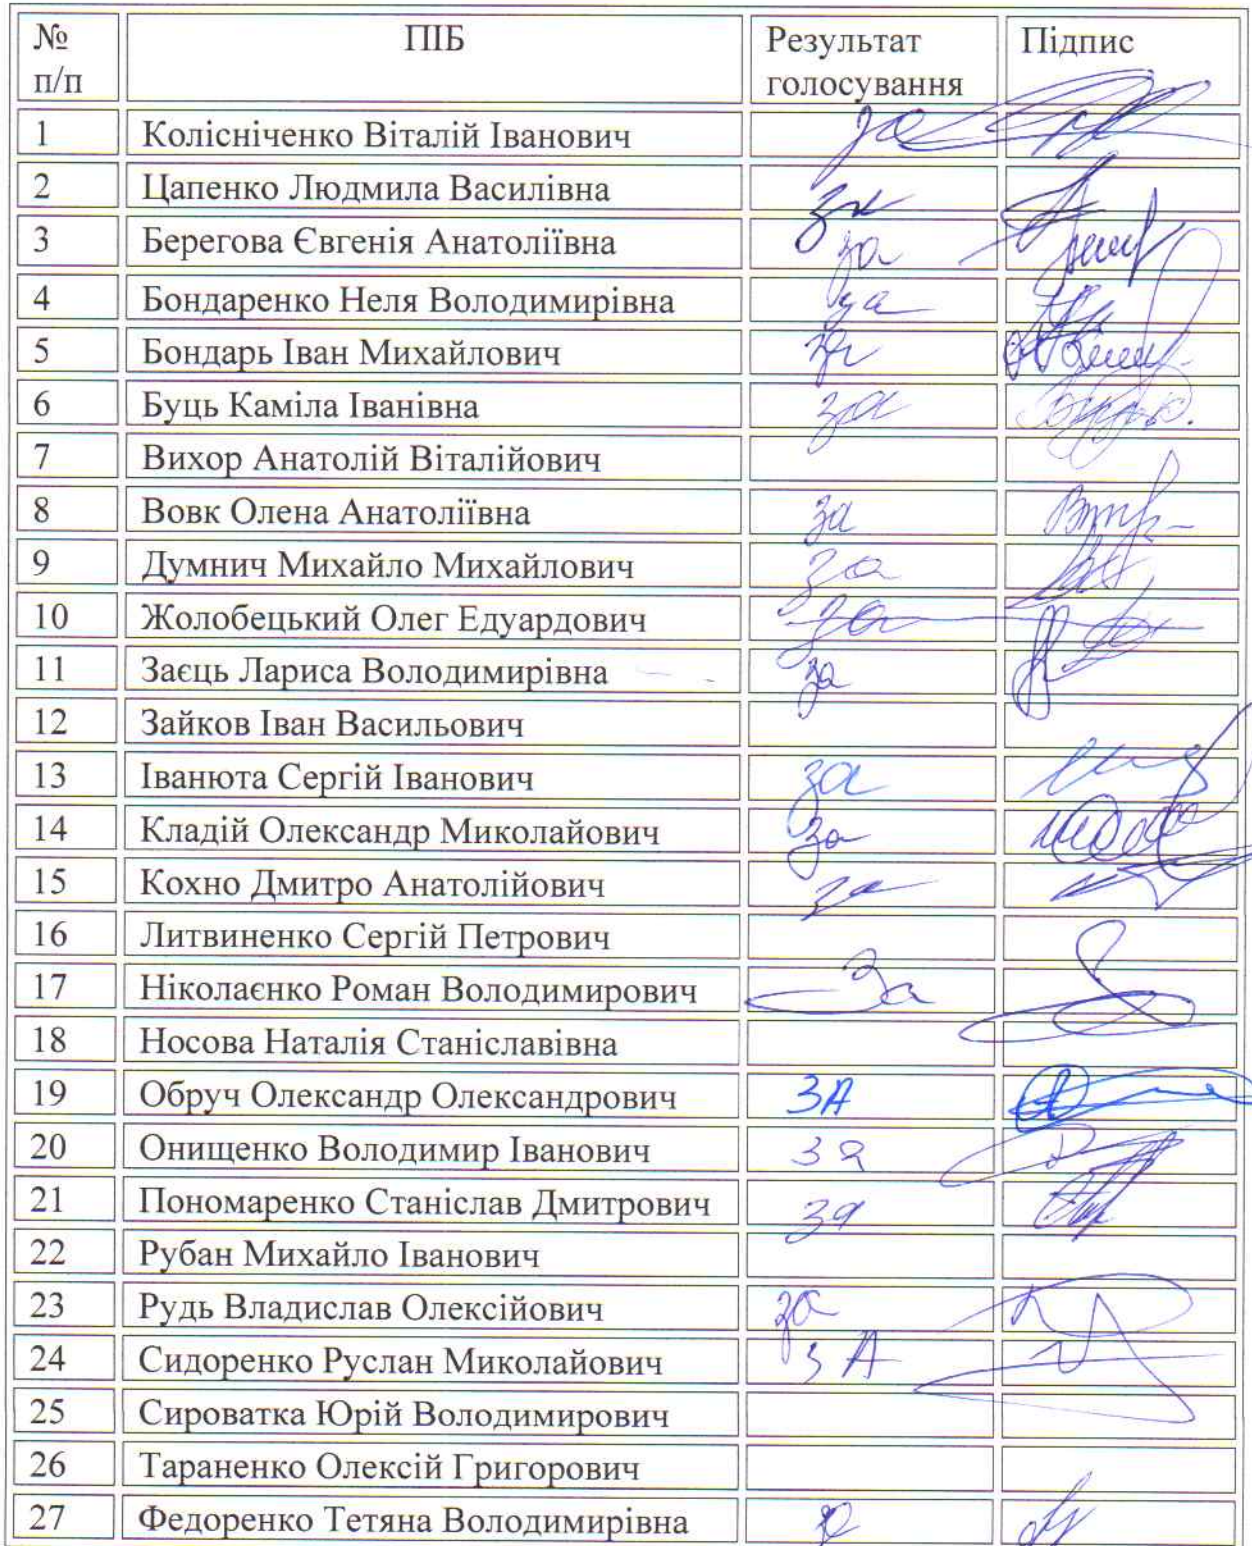 № п/п ПІБ Результат голосування Підпис
1 Колісніченко Віталій Іванович за
2 Цапенко Людмила Василівна за
3 Берегова Євгенія Анатоліївна за
4 Бондаренко Неля Володимирівна за
5 Бондарь Іван Михайлович за
6 Буць Каміла Іванівна за
7 Вихор Анатолій Віталійович
8 Вовк Олена Анатоліївна за
9 Думнич Михайло Михайлович за
10 Жолобецький Олег Едуардович за
11 Заєць Лариса Володимирівна за
12 Зайков Іван Васильович
13 Іванюта Сергій Іванович за
14 Кладій Олександр Миколайович за
15 Кохно Дмитро Анатолійович за
16 Литвиненко Сергій Петрович
17 Ніколаєнко Роман Володимирович За
18 Носова Наталія Станіславівна
19 Обруч Олександр Олександрович ЗА
20 Онищенко Володимир Іванович за
21 Пономаренко Станіслав Дмитрович за
22 Рубан Михайло Іванович
23 Рудь Владислав Олексійович за
24 Сидоренко Руслан Миколайович ЗА
25 Сироватка Юрій Володимирович
26 Тараненко Олексій Григорович
27 Федоренко Тетяна Володимирівна